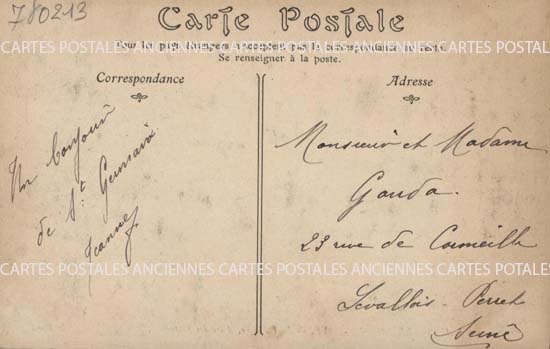 780213
Carte Postale
CARTES POSTALES ANCIENNES CARTES POSTALES ANCIENNES CARTES POTALES
Se renseigner à la poste.
Correspondance
Adresse
Un bonjour
de St Germain
Jeanne
Monsieur et Madame
Gouda.
23 rue de Cormeille
Levallois-Perret
Seine
CARTES POSTALES ANCIENNES CARTES POSTALES ANCIENNES CARTES POTALES